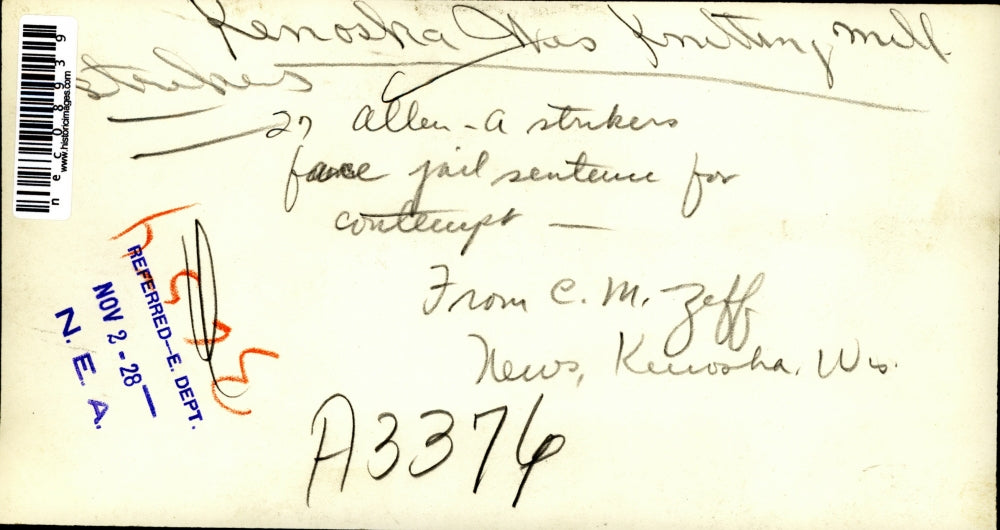 Kenosha Wis Knitting mill
strikers
27 Allen-A strikers
face jail sentence for
contempt —
From C. M. Zeff
News, Kenosha, Wis.
A3376
REFERRED—E. DEPT.
NOV 2 - 28 —
N. E. A.
nec08939
www.historicimages.com